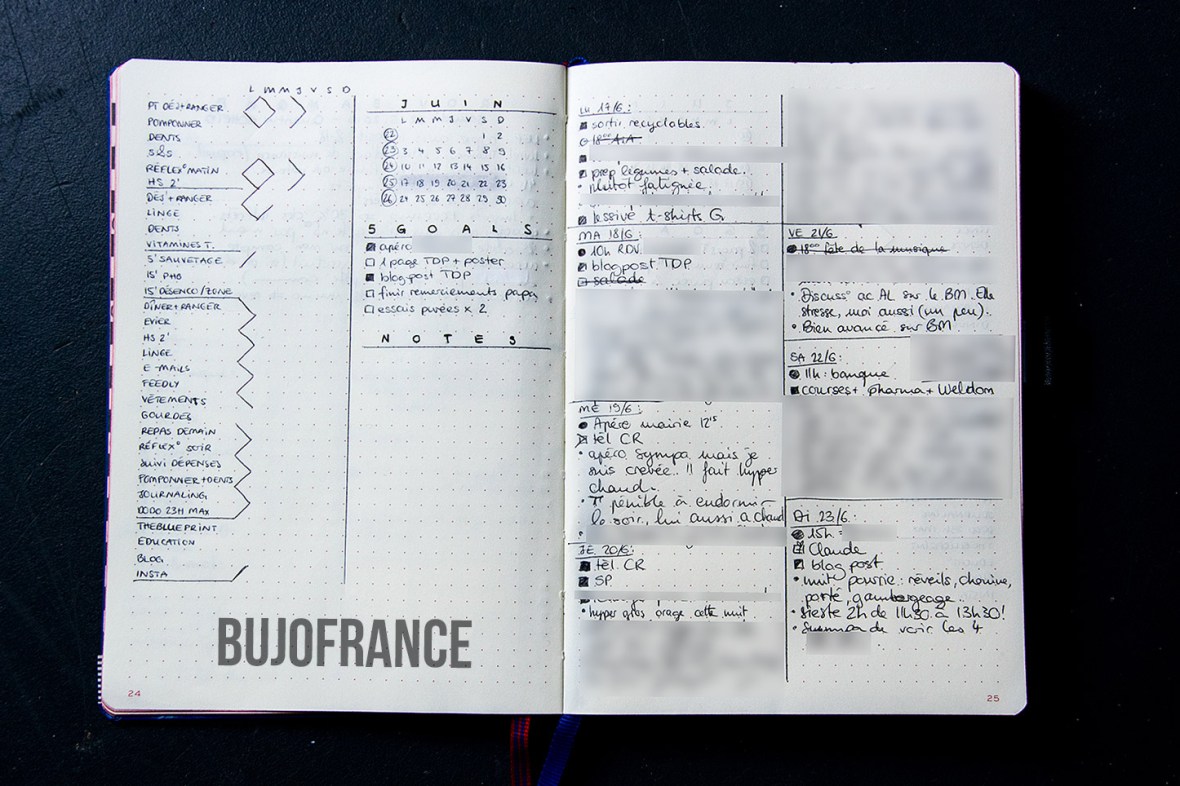 L M M J V S D
PT DÉJ+RANGER
POMPONNER
DENTS
5S&S
RÉFLEX° MATIN
HS 2'
DÉJ'+RANGER
LINGE
DENTS
VITAMINES T.
5' SAUVETAGE
15' PHO
15' DÉSENCO/ZONE
DÎNER+RANGER
EVIER
HS 2'
LINGE
E-MAILS
FEEDLY
VÊTEMENTS
GOURDES
REPAS DEMAIN
RÉFLEX° SOIR
SUIVI DÉPENSES
POMPONNER+DENTS
JOURNALING
DODO 23H MAX
THEBLUEPRINT
EDUCATION
BLOG
INSTA
JUIN
L M M J V S D
22 1 2
23 3 4 5 6 7 8 9
24 10 11 12 13 14 15 16
25 17 18 19 20 21 22 23
26 24 25 26 27 28 29 30
5 GOALS
apéro
1 page TDP + poster
blogpost TDP
finir remerciements papa
essais purées x 2
NOTES
BUJOFRANCE
24
LU 17/6:
sortir recyclables.
18°° A.A
prép légumes + salade.
plutôt fatiguée.
lessive t-shirts G.
MA 18/6:
10h RDV
blogpost TDP
salade
ME 19/6:
Apéro mairie 12¹⁵
tél CR
apéro sympa mais je
suis crevée. Il fait hyper
chaud.
pénible à endormir
le soir, lui aussi a chaud
JE 20/6:
tél. CR
SP
hyper gros orage cette nuit
VE 21/6:
18°° fête de la musique
Discuss° ac AL sur le BM. Elle
stresse, moi aussi (un peu).
Bien avancé sur BM
SA 22/6:
11h: banque
courses+ pharma + Weldom
DI 23/6:
15h:
Claude
blog post
nuit pourrie: réveils, chouine,
porté, gambergeage
sieste 2h de 11h30 à 13h30!
voir les 4
25